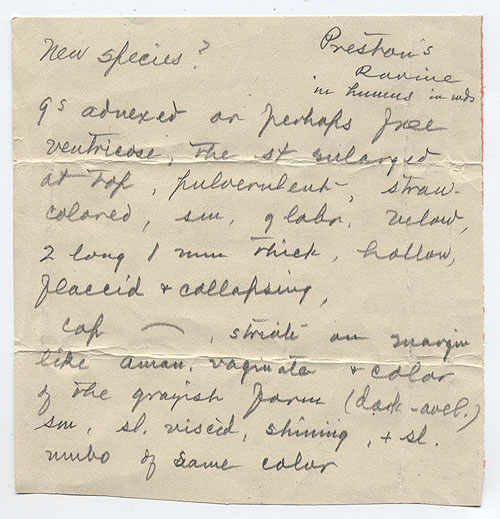 New species?
Preston's
Ravine
in humus in wds
gs adnexed or perhaps free
ventricose, the st enlarged
at top, pulverulent, straw-
colored, sm, glabr. below,
2 long 1 mm thick, hollow,
flaccid & collapsing,
cap , striate on margin
like aman. vaginata & color
of the grayish form (dark-avel.)
sm, sl. viscid, shining, & sl.
umbo of same color